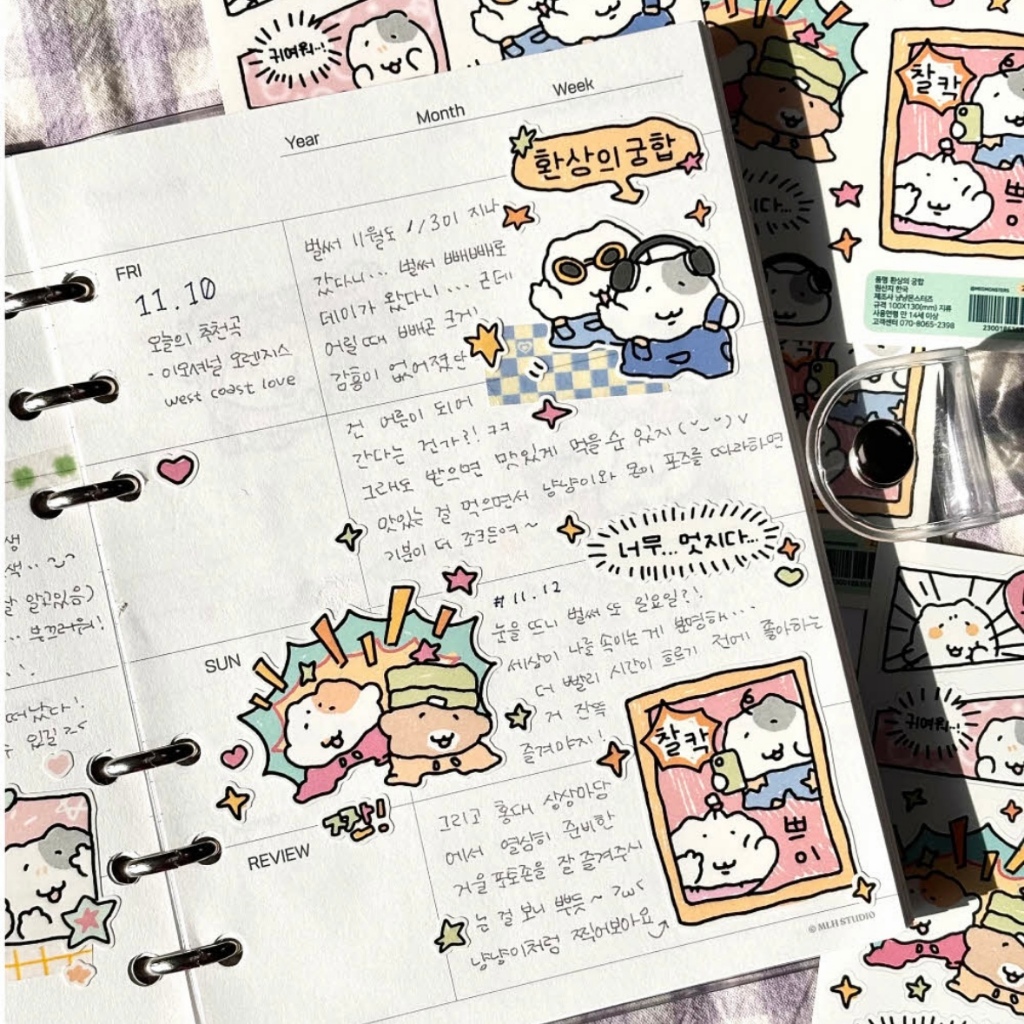 귀여워..!
Year
Month
Week
환상의 궁합
찰칵
쁘
이
FRI
11.10
오늘의 추천곡
- 이모셔널 오렌지스
west coast love
벌써 11월도 1/3이 지나
갔다니... 벌써 빼빼로
데이가 왔다니... 근데
어릴 때 빼곤 크게
감흥이 없어졌단
건 어른이 되어
간다는 건가?! ㅋㅋ
그래도 받으면 맛있게 먹을 수 있지
맛있는 걸 먹으면서 냥냥이와 몬이 포즈를 따라하면
기분이 더 조크든여~
너무...멋지다...
생
색..
알고있음)
... 부끄러워!
떠났다!
있길
SUN
# 11.12
눈을 뜨니 벌써 또 일요일?!
세상이 나를 속이는 게 분명해...
더 빨리 시간이 흐르기 전에 좋아하는
거 잔뜩
즐겨야지!
짠!
찰칵
쁘
이
REVIEW
그리고 홍대 상상마당
에서 열심히 준비한
거울 포토존을 잘 즐겨주시
는 걸 보니 뿌듯~
냥냥이처럼 찍어보아요
© MLH STUDIO
지다...
품명 환상의 궁합
원산지 한국
제조사 냥냥몬스터즈
규격 100X130(mm) 지류
사용연령 만 14세 이상
고객센터 070-8065-2398
귀여워..!